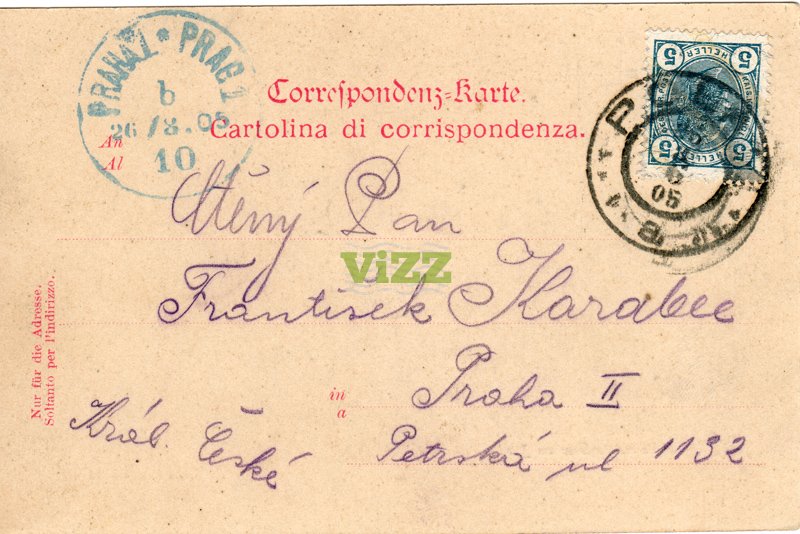 PRAHA 1 * PRAG 1
b
26/8.05
10
5 HELLER 5
5 HELLER 5
05
Correspondenz-Karte.
Cartolina di corrispondenza.
An
Al
Ctěný Pan
ViZZ
František Karabec
in
a
Praha II
Král. České
Petrská ul 1132
Nur für die Adresse.
Soltanto per l'indirizzo.